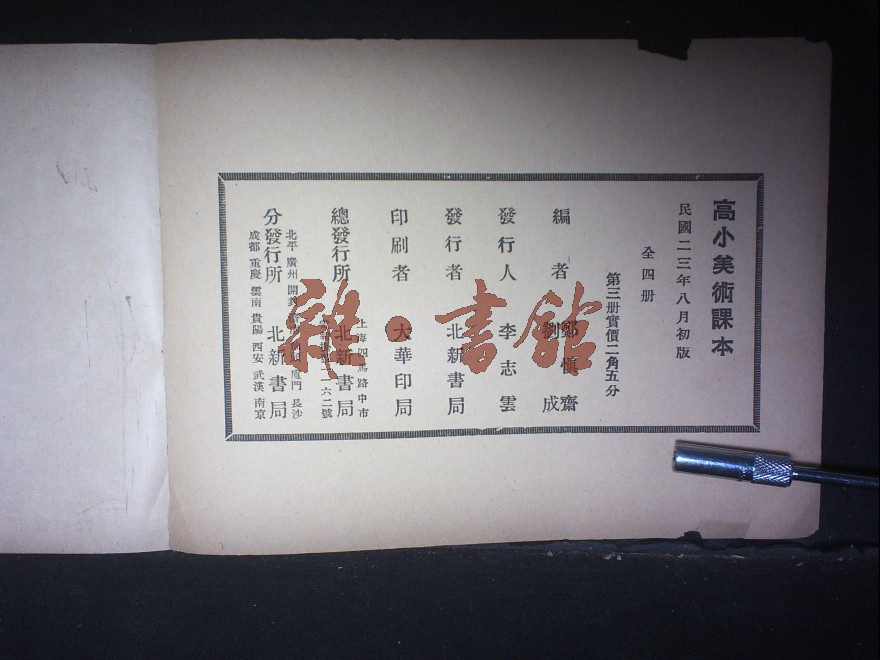 高小美術課本
民國二三年八月初版
全四册
第三册實價二角五分
編者 鄭慎齋
劉 成
發行人 李志雲
發行者 北新書局
印刷者 大華印局
上海四馬路中市
總發行所 北新書局
一六二號
北平 廣州 開封 厦門 長沙
分發行所 北新書局
成都 重慶 雲南 貴陽 西安 武漢 南京
雜·書館